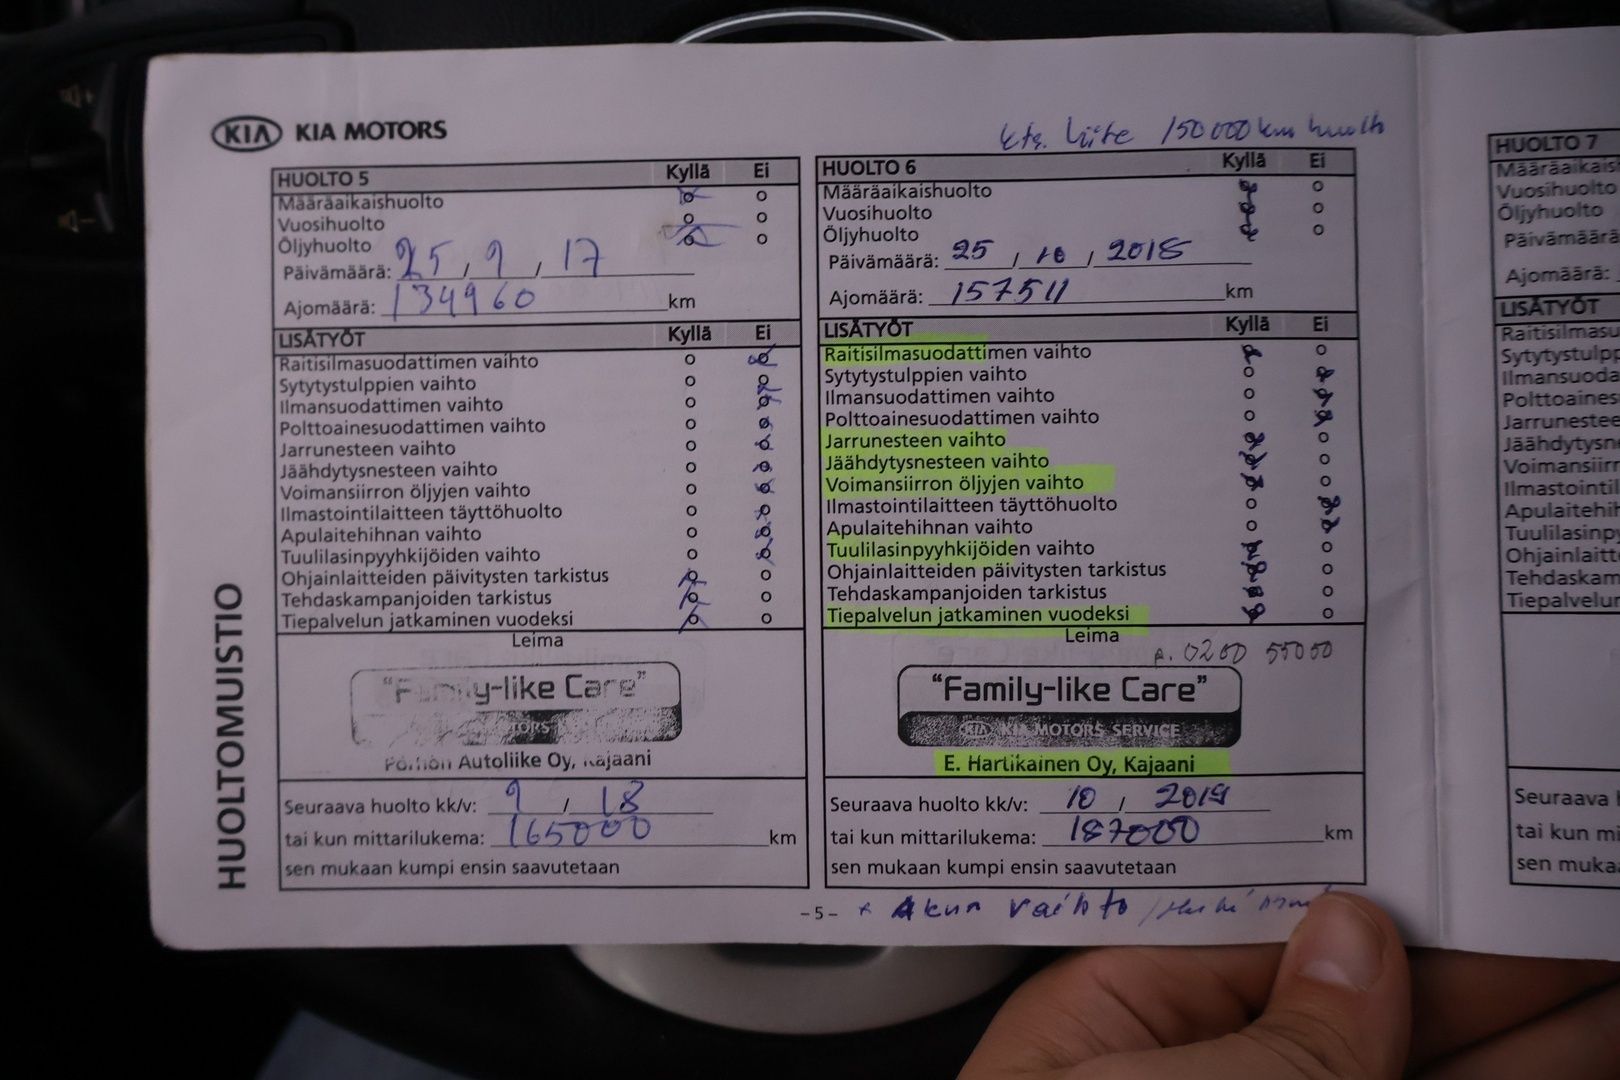 KIA KIA MOTORS
kts. liite 150000 km huolto
HUOLTO 5 Kyllä Ei
Määräaikaishuolto
Vuosihuolto
Öljyhuolto
Päivämäärä: 25 / 9 / 17
Ajomäärä: 134960 km
LISÄTYÖT Kyllä Ei
Raitisilmasuodattimen vaihto
Sytytystulppien vaihto
Ilmansuodattimen vaihto
Polttoainesuodattimen vaihto
Jarrunesteen vaihto
Jäähdytysnesteen vaihto
Voimansiirron öljyjen vaihto
Ilmastointilaitteen täyttöhuolto
Apulaitehihnan vaihto
Tuulilasinpyyhkijöiden vaihto
Ohjainlaitteiden päivitysten tarkistus
Tehdaskampanjoiden tarkistus
Tiepalvelun jatkaminen vuodeksi
Leima
"Family-like Care"
Autoliike Oy, Kajaani
Seuraava huolto kk/v: 9 / 18
tai kun mittarilukema: 165000 km
sen mukaan kumpi ensin saavutetaan
HUOLTO 6 Kyllä Ei
Määräaikaishuolto
Vuosihuolto
Öljyhuolto
Päivämäärä: 25 / 10 / 2018
Ajomäärä: 157511 km
LISÄTYÖT Kyllä Ei
Raitisilmasuodattimen vaihto
Sytytystulppien vaihto
Ilmansuodattimen vaihto
Polttoainesuodattimen vaihto
Jarrunesteen vaihto
Jäähdytysnesteen vaihto
Voimansiirron öljyjen vaihto
Ilmastointilaitteen täyttöhuolto
Apulaitehihnan vaihto
Tuulilasinpyyhkijöiden vaihto
Ohjainlaitteiden päivitysten tarkistus
Tehdaskampanjoiden tarkistus
Tiepalvelun jatkaminen vuodeksi
Leima
p. 0200 55000
"Family-like Care"
KIA KIA MOTORS SERVICE
E. Hartikainen Oy, Kajaani
Seuraava huolto kk/v: 10 / 2019
tai kun mittarilukema: 187000 km
sen mukaan kumpi ensin saavutetaan
- 5 -
* Akun vaihto
HUOLTOMUISTIO
HUOLTO 7
Määräaikais
Vuosihuolto
Öljyhuolto
Päivämäärä
Ajomäärä:
LISÄTYÖT
Raitisilmasu
Sytytystulpp
Ilmansuoda
Polttoaines
Jarrunestee
Jäähdytysn
Voimansiirr
Ilmastointil
Apulaitehih
Tuulilasinpy
Ohjainlaitt
Tehdaskam
Tiepalvelun
Seuraava
tai kun mi
sen mukaa